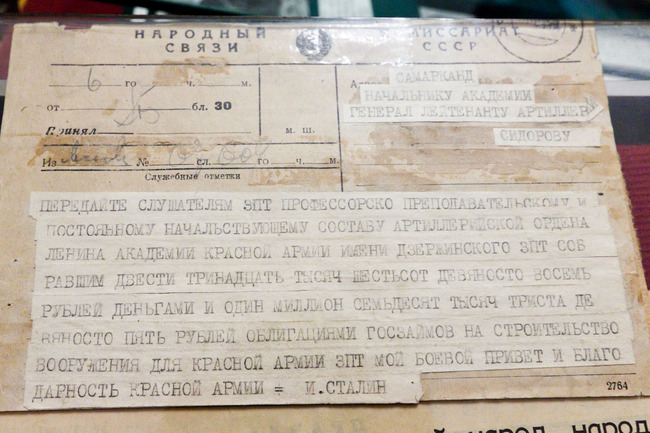 НАРОДНЫЙ КОМИССАРИАТ
СВЯЗИ СССР
6 го ч. м.
от бл. 30
Принял м. ш.
Из № сл. го ч. м.
Служебные отметки
САМАРКАНД
НАЧАЛЬНИКУ АКАДЕМИИ
ГЕНЕРАЛ ЛЕЙТЕНАНТУ АРТИЛЛЕР
СИДОРОВУ
ПЕРЕДАЙТЕ СЛУШАТЕЛЯМ ЗПТ ПРОФЕССОРСКО ПРЕПОДАВАТЕЛЬСКОМУ И
ПОСТОЯННОМУ НАЧАЛЬСТВУЮЩЕМУ СОСТАВУ АРТИЛЛЕРИЙСКОЙ ОРДЕНА
ЛЕНИНА АКАДЕМИИ КРАСНОЙ АРМИИ ИМЕНИ ДЗЕРЖИНСКОГО ЗПТ СОБ
РАВШИМ ДВЕСТИ ТРИНАДЦАТЬ ТЫСЯЧ ШЕСТЬСОТ ДЕВЯНОСТО ВОСЕМЬ
РУБЛЕЙ ДЕНЬГАМИ И ОДИН МИЛЛИОН СЕМЬДЕСЯТ ТЫСЯЧ ТРИСТА ДЕ
ВЯНОСТО ПЯТЬ РУБЛЕЙ ОБЛИГАЦИЯМИ ГОСЗАЙМОВ НА СТРОИТЕЛЬСТВО
ВООРУЖЕНИЯ ДЛЯ КРАСНОЙ АРМИИ ЗПТ МОЙ БОЕВОЙ ПРИВЕТ И БЛАГО
ДАРНОСТЬ КРАСНОЙ АРМИИ = И.СТАЛИН
2764
народ народ